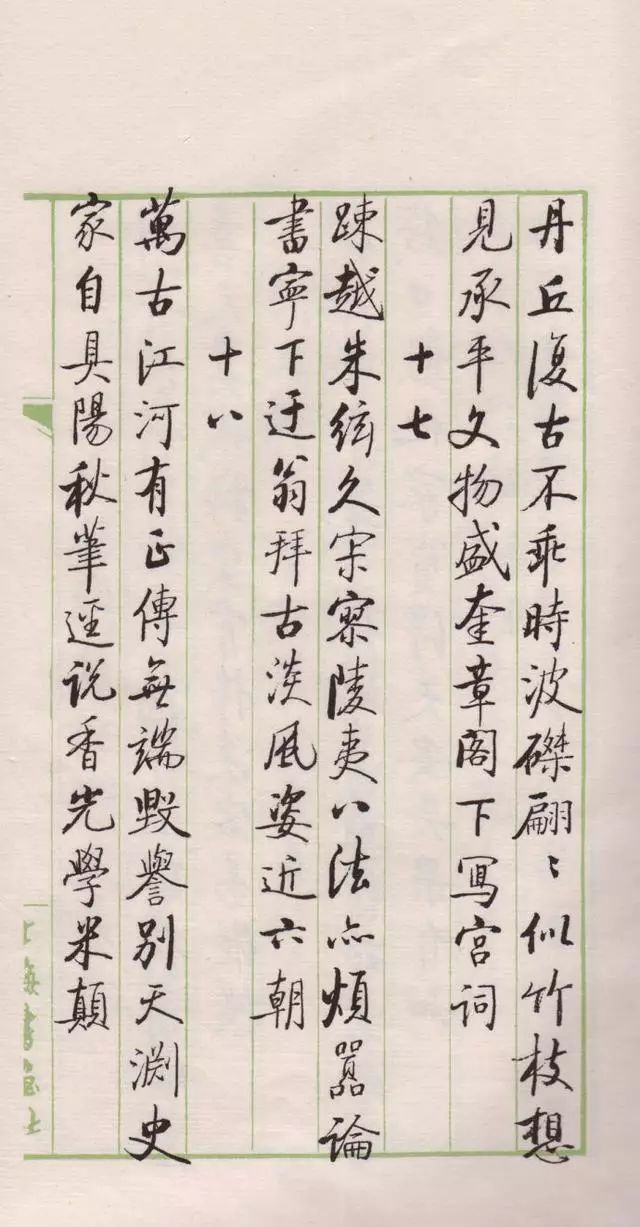 丹丘復古不乖時波磔翩〻似竹枝想
見承平文物盛奎章閣下寫宮詞
十七
疎越朱絃久宋寥陵夷八法亦煩囂論
書寧下迂翁拜古淡風姿近六朝
十八
萬古江河有正傳無端毀譽別天淵史
家自具陽秋筆逕说香光學米顛
上海書画社